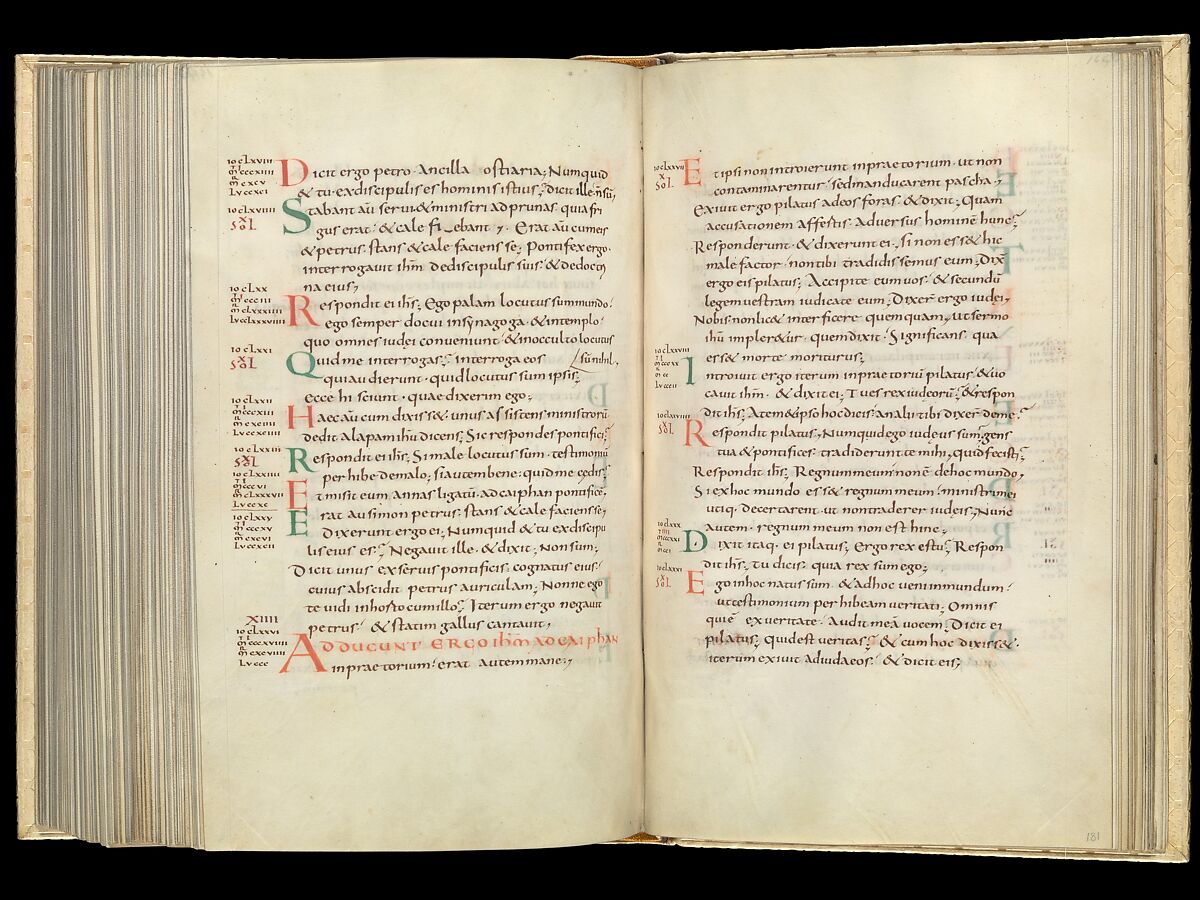 Dicit ergo petro · Ancilla ostiaria; Numquid
& tu · ex discipulis es hominis istius; dicit ille · n̄ sū;
Stabant aū serui & ministri ad prunas · quia fri
gus erat · & cale fi_ebant; · Erat aū cum eis
& petrus · stans & cale faciens se; Pontifex ergo ·
inter rogauit ihm̄ de discipulis suis · & de doctri
na eius;
Respondit ei ihs; Ego palam locutus sum mundo ·
ego semper docui in synagoga · & in templo ·
quo omnes iudei conueniunt · & in occulto locutus
Quid me interrogas; interroga eos sū nihil ·
qui audierunt · quid locutus sum ipsis;
ecce hi sciunt · quae dixerim ego;
Haec aū cum dixiss& · unus assistens ministrorū
dedit alapam ihu dicens; Sic respondes pontifici;
Respondit ei ihs; Si male locutus sum · testimoniū
perhibe de malo; si autem bene · quid me cędis;
Et misit eum annas ligatū · ad caiphan pontificē;
Erat aū simon petrus · stans & cale faciens se;
Dixerunt ergo ei; Numquid & tu ex discipu
lis eius es; Negauit ille · & dixit; Non sum;
Dicit unus ex seruis pontificis · cognatus eius
cuius abscidit petrus auriculam; Nonne ego
te uidi in horto cum illo; Iterum ergo negauit
petrus · & statim gallus cantauit;
XIIII
ADDUCUNT ERGO ihm̄ AD CAiphan
in praetorium; erat autem mane;
Et ipsi non introierunt in praetorium · ut non
contaminarentur · sed manducarent pascha;
Exiuit ergo pilatus ad eos foras · & dixit; Quam
accusationem affertis · aduersus hominē hunc;
Responderunt · & dixerunt ei · si non ess& hic
male factor · non tibi tradidissemus eum; Dix̄
ergo eis pilatus; Accipite eum uos · & secundū
legem uestram iudicate eum; Dixer̄ ergo iudei;
Nobis non lic& interficere quemquam; ut sermo
ihū impler&ur · quem dixit · Significans qua
ess& morte moriturus;
Introiuit ergo iterum in praetoriū pilatus · & uo
cauit ihm̄ · & dixit ei; Tu es rex iudeorū; & respon
dit ihs; A tem&ipso hoc dicis · an alii tibi dixer̄ de me;
Respondit pilatus; Numquid ego iudeus sum; gens
tua & pontifices · tradiderunt te mihi; quid fecisti;
Respondit ihs; Regnum meum non ē de hoc mundo;
Si ex hoc mundo ess& regnum meum · ministri mei
utiq · decertarent · ut non traderer iudeis; Nunc
autem · regnum meum non est hinc;
Dixit itaq · ei pilatus; Ergo rex es tu; Respon
dit ihs; Tu dicis · quia rex sum ego;
Ego in hoc natus sum · & ad hoc ueni in mundum ·
ut testimonium perhibeam ueritati; Omnis
qui ē ex ueritate · Audit meā uocem; Dicit ei
pilatus; quid est ueritas; & cum hoc dixiss& ·
iterum exiuit ad iudaeos · & dicit eis;
181